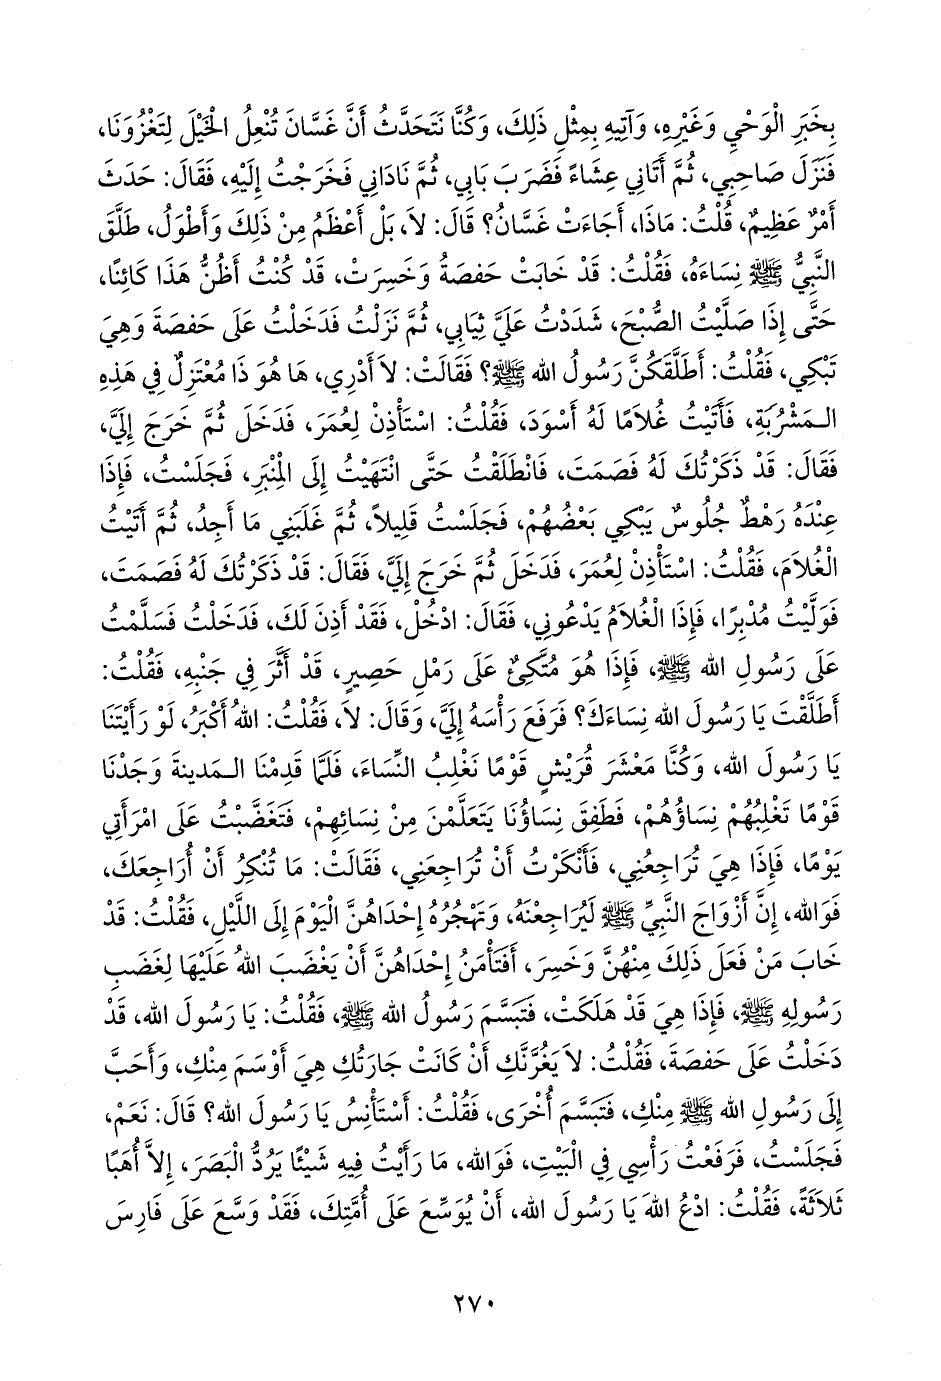 بِخَبَرِ الْوَحْيِ وَغَيْرِهِ، وَآتِيهِ بِمِثْلِ ذَلِكَ، وَكُنَّا نَتَحَدَّثُ أَنَّ غَسَّانَ تُنْعِلُ الْخَيْلَ لِتَغْزُوَنَا،
فَنَزَلَ صَاحِبِي، ثُمَّ أَتَانِي عِشَاءً فَضَرَبَ بَابِي، ثُمَّ نَادَانِي فَخَرَجْتُ إِلَيْهِ، فَقَالَ: حَدَثَ
أَمْرٌ عَظِيمٌ، قُلْتُ: مَاذَا، أَجَاءَتْ غَسَّانُ؟ قَالَ: لاَ، بَلْ أَعْظَمُ مِنْ ذَلِكَ وَأَطْوَلُ، طَلَّقَ
النَّبِيُّ ﷺ نِسَاءَهُ، فَقُلْتُ: قَدْ خَابَتْ حَفصَةُ وَخَسِرَتْ، قَدْ كُنْتُ أَظُنُّ هَذَا كَائِنًا،
حَتَّى إِذَا صَلَّيْتُ الصُّبْحَ، شَدَدْتُ عَلَيَّ ثِيَابِي، ثُمَّ نَزَلْتُ فَدَخَلْتُ عَلَى حَفصَةَ وَهِيَ
تَبْكِي، فَقُلْتُ: أَطَلَّقَكُنَّ رَسُولُ الله ﷺ؟ فَقَالَتْ: لاَ أَدْرِي، هَا هُوَ ذَا مُعْتَزِلٌ فِي هَذِهِ
الـمَشْرُبَةِ، فَأَتَيْتُ غُلاَمًا لَهُ أَسْوَدَ، فَقُلْتُ: اسْتَأْذِنْ لِعُمَرَ، فَدَخَلَ ثُمَّ خَرَجَ إِلَيَّ،
فَقَالَ: قَدْ ذَكَرْتُكَ لَهُ فَصَمَتَ، فَانْطَلَقْتُ حَتَّى انْتَهَيْتُ إِلَى الْمِنْبَرِ، فَجَلَسْتُ، فَإِذَا
عِنْدَهُ رَهْطٌ جُلُوسٌ يَبْكِي بَعْضُهُمْ، فَجَلَسْتُ قَلِيلاً، ثُمَّ غَلَبَنِي مَا أَجِدُ، ثُمَّ أَتَيْتُ
الْغُلاَمَ، فَقُلْتُ: اسْتَأْذِنْ لِعُمَرَ، فَدَخَلَ ثُمَّ خَرَجَ إِلَيَّ، فَقَالَ: قَدْ ذَكَرْتُكَ لَهُ فَصَمَتَ،
فَوَلَّيْتُ مُدْبِرًا، فَإِذَا الْغُلاَمُ يَدْعُونِي، فَقَالَ: ادْخُلْ، فَقَدْ أَذِنَ لَكَ، فَدَخَلْتُ فَسَلَّمْتُ
عَلَى رَسُولِ الله ﷺ، فَإِذَا هُوَ مُتَّكِئٌ عَلَى رَمْلِ حَصِيرٍ، قَدْ أَثَّرَ فِي جَنْبِهِ، فَقُلْتُ:
أَطَلَّقْتَ يَا رَسُولَ الله نِسَاءَكَ؟ فَرَفَعَ رَأْسَهُ إِلَيَّ، وَقَالَ: لاَ، فَقُلْتُ: اللهُ أَكْبَرُ، لَوْ رَأَيْتَنَا
يَا رَسُولَ الله، وَكُنَّا مَعْشَرَ قُرَيْشٍ قَوْمًا نَغْلِبُ النِّسَاءَ، فَلَمَّا قَدِمْنَا الـمَدينةَ وَجَدْنَا
قَوْمًا تَغْلِبُهُمْ نِسَاؤُهُمْ، فَطَفِقَ نِسَاؤُنَا يَتَعَلَّمْنَ مِنْ نِسَائِهِمْ، فَتَغَضَّبْتُ عَلَى امْرَأَتِي
يَوْمًا، فَإِذَا هِيَ تُرَاجِعُنِي، فَأَنْكَرْتُ أَنْ تُرَاجِعَنِي، فَقَالَتْ: مَا تُنْكِرُ أَنْ أُرَاجِعَكَ،
فَوَالله، إِنَّ أَزْوَاجَ النَّبِيِّ ﷺ لَيُرَاجِعْنَهُ، وَتَهْجُرُهُ إِحْدَاهُنَّ الْيَوْمَ إِلَى اللَّيْلِ، فَقُلْتُ: قَدْ
خَابَ مَنْ فَعَلَ ذَلِكَ مِنْهُنَّ وَخَسِرَ، أَفَتَأْمَنُ إِحْدَاهُنَّ أَنْ يَغْضَبَ اللهُ عَلَيْهَا لِغَضَبِ
رَسُولِهِ ﷺ، فَإِذَا هِيَ قَدْ هَلَكَتْ، فَتَبَسَّمَ رَسُولُ الله ﷺ، فَقُلْتُ: يَا رَسُولَ الله، قَدْ
دَخَلْتُ عَلَى حَفصَةَ، فَقُلْتُ: لاَ يَغُرَّنَّكِ أَنْ كَانَتْ جَارَتُكِ هِيَ أَوْسَمَ مِنْكِ، وَأَحَبَّ
إِلَى رَسُولِ الله ﷺ مِنْكِ، فَتَبَسَّمَ أُخْرَى، فَقُلْتُ: أَسْتَأْنِسُ يَا رَسُولَ الله؟ قَالَ: نَعَمْ،
فَجَلَسْتُ، فَرَفَعْتُ رَأْسِي فِي الْبَيْتِ، فَوَالله، مَا رَأَيْتُ فِيهِ شَيْئًا يَرُدُّ الْبَصَرَ، إِلاَّ أُهَبًا
ثَلاَثَةً، فَقُلْتُ: ادْعُ اللهَ يَا رَسُولَ الله، أَنْ يُوَسِّعَ عَلَى أُمَّتِكَ، فَقَدْ وَسَّعَ عَلَى فَارِسَ
٢٧٠